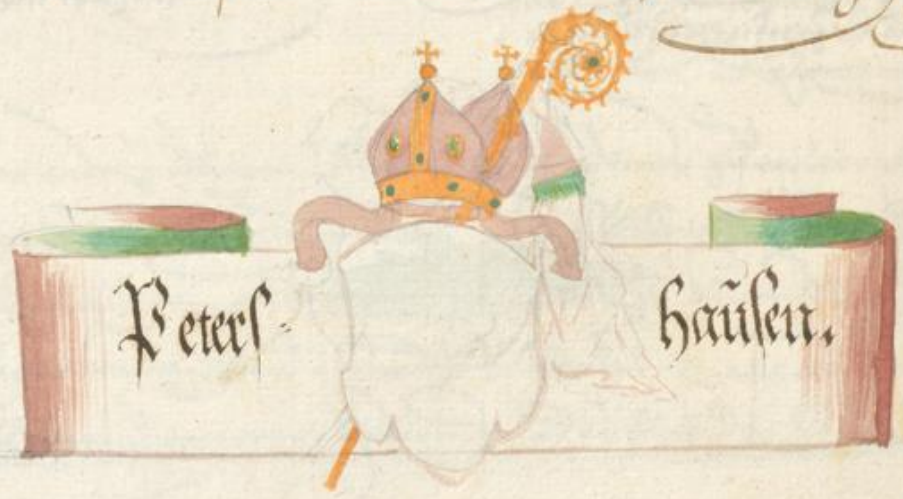 Peters- haũsen.